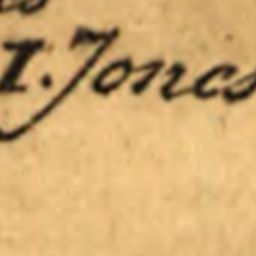 I. Jones